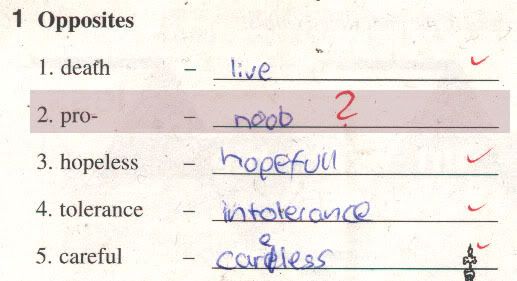 1 Opposites
1. death – live ✓
2. pro- – noob ?
3. hopeless – hopefull ✓
4. tolerance – intolerance ✓
5. careful – careless ✓